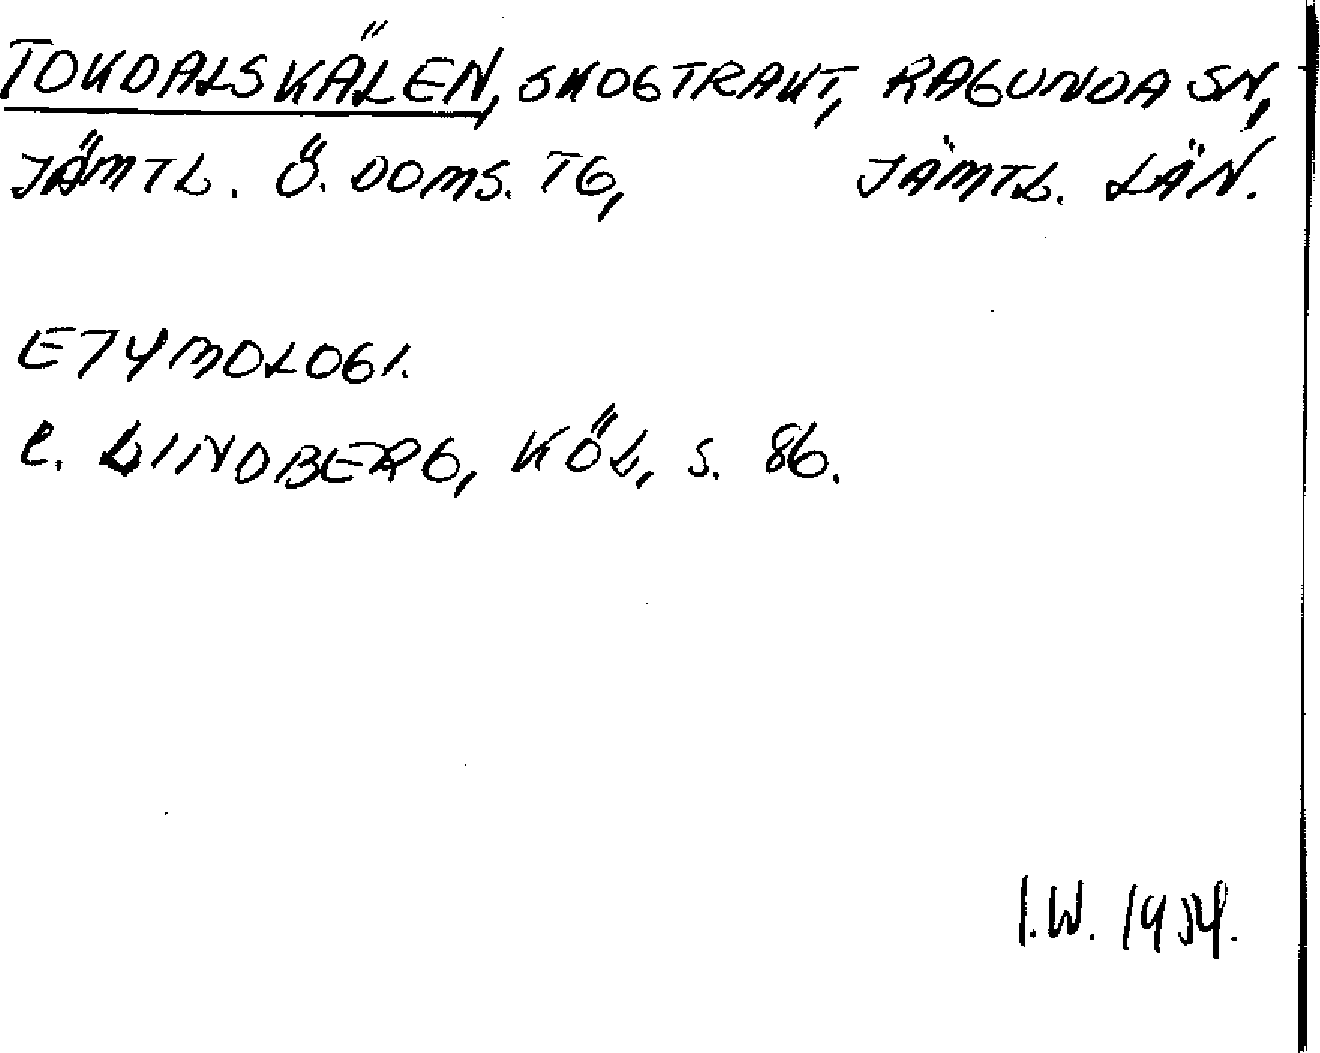 TOKDALSKÄLEN, SKOGTRAKT, RAGUNDA SN,
JÄMTL. Ö. DOMS. TG, JÄMTL. LÄN.
ETYMOLOGI.
C. LINDBERG, KÖL, S. 86.
I.W. 1954.